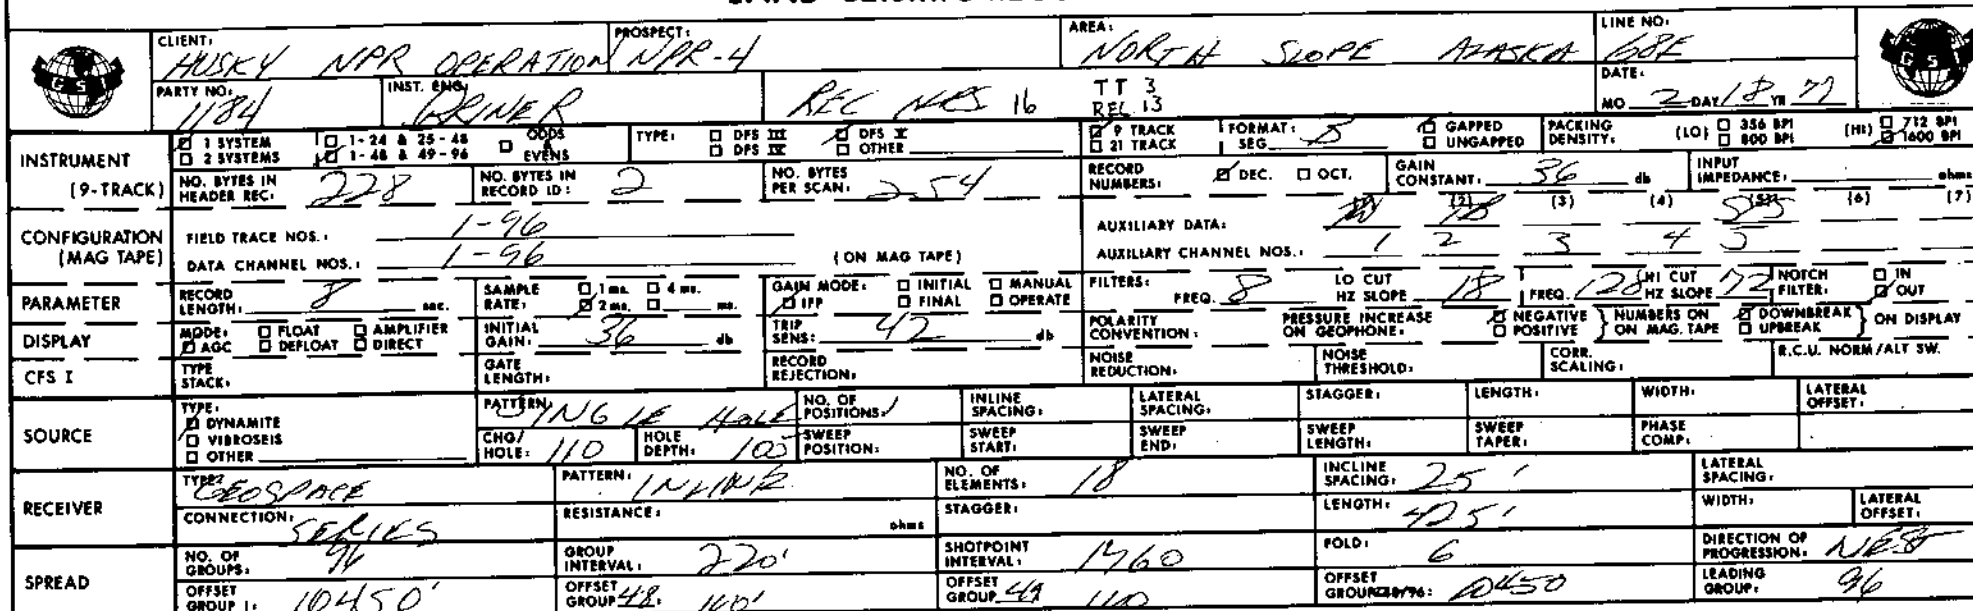 CLIENT: HUSKY NPR OPERATION PROSPECT: NPR-4 AREA: NORTH SLOPE ALASKA LINE NO: 68E
GSI
PARTY NO: 1184 INST. ENG. REC NOS 16 TT 3 REL 13 DATE: MO 2 DAY 18 YR 77
INSTRUMENT (9-TRACK)
1 SYSTEM 1-24 & 25-48 ODDS & EVENS TYPE: DFS III DFS V 9 TRACK FORMAT: GAPPED PACKING DENSITY: (LO) 356 BPI (HI) 712 BPI
2 SYSTEMS 1-48 & 49-96 DFS IV OTHER 21 TRACK SEG. B UNGAPPED 800 BPI 1600 BPI
NO. BYTES IN HEADER REC: 228 NO. BYTES IN RECORD ID: 2 NO. BYTES PER SCAN: 254 RECORD NUMBERS: DEC. OCT. GAIN CONSTANT: 36 db INPUT IMPEDANCE: ohms
CONFIGURATION (MAG TAPE)
(2) (3) (4) (5) (6) (7)
FIELD TRACE NOS.: 1-96 AUXILIARY DATA:
DATA CHANNEL NOS.: 1-96 (ON MAG TAPE) AUXILIARY CHANNEL NOS.: 1 2 3 4 5
PARAMETER RECORD LENGTH: 8 sec. SAMPLE RATE: 1 ms. 4 ms. 2 ms. ms. GAIN MODE: INITIAL MANUAL IFP FINAL OPERATE FILTERS: FREQ. 8 LO CUT HZ SLOPE 18 FREQ. 128 HI CUT HZ SLOPE 72 NOTCH FILTER: IN OUT
DISPLAY MODE: FLOAT AMPLIFIER AGC DEFLOAT DIRECT INITIAL GAIN: 36 db TRIP SENS: 42 db POLARITY CONVENTION: PRESSURE INCREASE ON GEOPHONE: NEGATIVE POSITIVE NUMBERS ON ON MAG. TAPE DOWNBREAK UPBREAK ON DISPLAY
CFS I TYPE STACK: GATE LENGTH: RECORD REJECTION: NOISE REDUCTION: NOISE THRESHOLD: CORR. SCALING: R.C.U. NORM/ALT SW.
SOURCE TYPE: DYNAMITE VIBROSEIS OTHER PATTERN: SINGLE HOLE NO. OF POSITIONS: 1 INLINE SPACING: LATERAL SPACING: STAGGER: LENGTH: WIDTH: LATERAL OFFSET:
CHG/HOLE: 110 HOLE DEPTH: 105 SWEEP POSITION: SWEEP START: SWEEP END: SWEEP LENGTH: SWEEP TAPER: PHASE COMP:
RECEIVER TYPE: GEOSPACE PATTERN: INLINE NO. OF ELEMENTS: 18 INCLINE SPACING: 25' LATERAL SPACING:
CONNECTION: SERIES RESISTANCE: ohms STAGGER: LENGTH: 425' WIDTH: LATERAL OFFSET:
SPREAD NO. OF GROUPS: 96 GROUP INTERVAL: 220' SHOTPOINT INTERVAL: 1760 FOLD: 6 DIRECTION OF PROGRESSION:
OFFSET GROUP 1: 10450' OFFSET GROUP 48: OFFSET GROUP 49 110 OFFSET GROUP 96: 10450 LEADING GROUP: 96